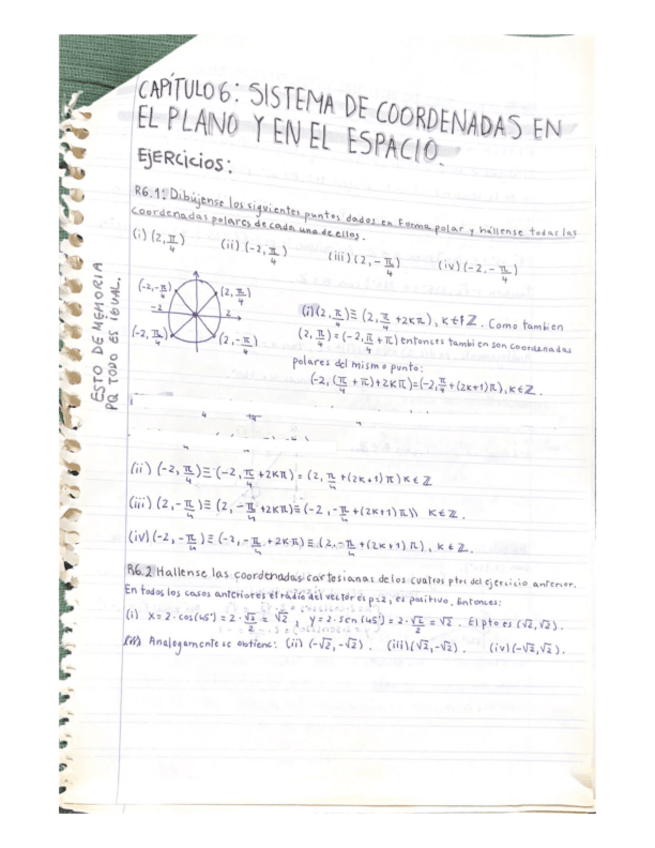 CAPÍTULO 6: SISTEMA DE COORDENADAS EN
EL PLANO Y EN EL ESPACIO.
Ejercicios:
R6.1: Dibújense los siguientes puntos dados en forma polar y hállense todas las
coordenadas polares de cada uno de ellos.
(i) (2, π/4) (ii) (-2, π/4) (iii) (2, -π/4) (iv) (-2, -π/4)
ESTO DE MEMORIA
PQ TODO ES IGUAL.
(-2, -π/4) (2, π/4)
-2 2
(-2, π/4) (2, -π/4)
(i) (2, π/4) ≡ (2, π/4 + 2kπ), k ∈ ℤ. Como tambien
(2, π/4) = (-2, π/4 + π) entonces tambien son coordenadas
polares del mismo punto:
(-2, (π/4 + π) + 2kπ) = (-2, π/4 + (2k+1)π), k ∈ ℤ.
(ii) (-2, π/4) ≡ (-2, π/4 + 2kπ) = (2, π/4 + (2k+1)π) k ∈ ℤ
(iii) (2, -π/4) ≡ (2, -π/4 + 2kπ) ≡ (-2, -π/4 + (2k+1)π)) k ∈ ℤ.
(iv) (-2, -π/4) ≡ (-2, -π/4 + 2kπ) ≡ (2, -π/4 + (2k+1)π), k ∈ ℤ.
R6.2 Hallense las coordenadas cartesianas de los cuatros ptos del ejercicio anterior.
En todos los casos anteriores el radio del vector es ρ=2, es positivo. Entonces:
(i) x = 2·cos(45°) = 2·√2/2 = √2, y = 2·sen(45°) = 2·√2/2 = √2. El pto es (√2, √2).
Analogamente se obtiene: (ii) (-√2, -√2). (iii) (√2, -√2). (iv) (-√2, √2).